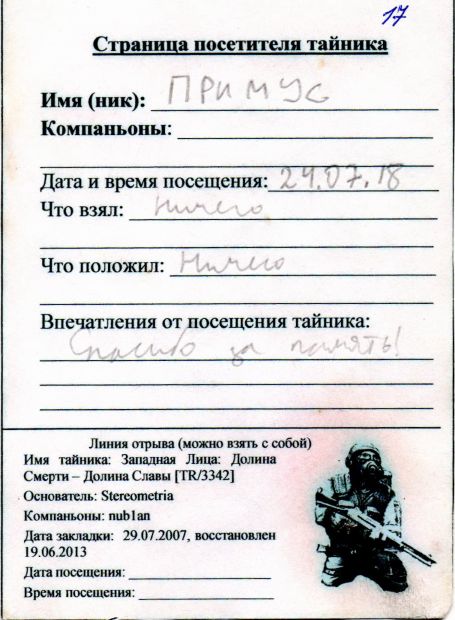 17
Страница посетителя тайника
Имя (ник): ПРИМУС
Компаньоны:
Дата и время посещения: 24.07.18
Что взял: Ничего
Что положил: Ничего
Впечатления от посещения тайника:
Спасибо за память!
Линия отрыва (можно взять с собой)
Имя тайника: Западная Лица: Долина
Смерти – Долина Славы [TR/3342]
Основатель: Stereometria
Компаньоны: nub1an
Дата закладки: 29.07.2007, восстановлен
19.06.2013
Дата посещения:
Время посещения: